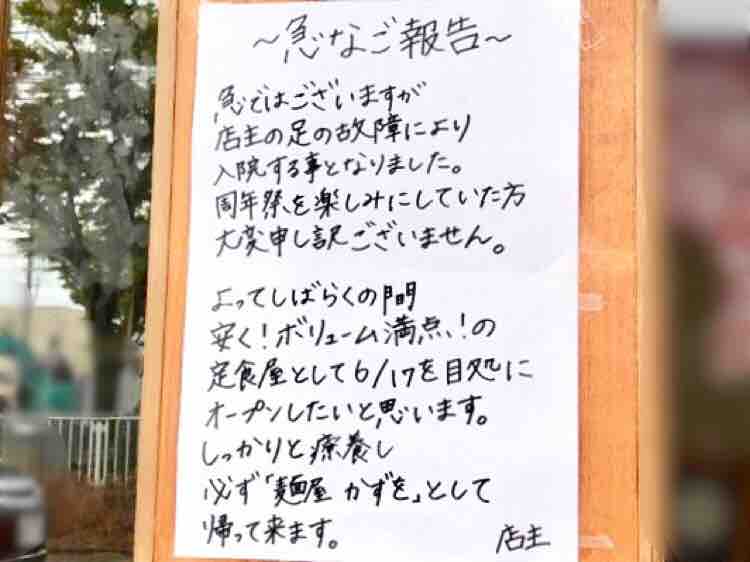 ～急なご報告～
急ではございますが
店主の足の故障により
入院する事となりました。
周年祭を楽しみにしていた方
大変申し訳ございません。
よってしばらくの間
安く！ボリューム満点！の
定食屋として6/17を目処に
オープンしたいと思います。
しっかりと療養し
必ず「麺屋 かずを」として
帰って来ます。
店主